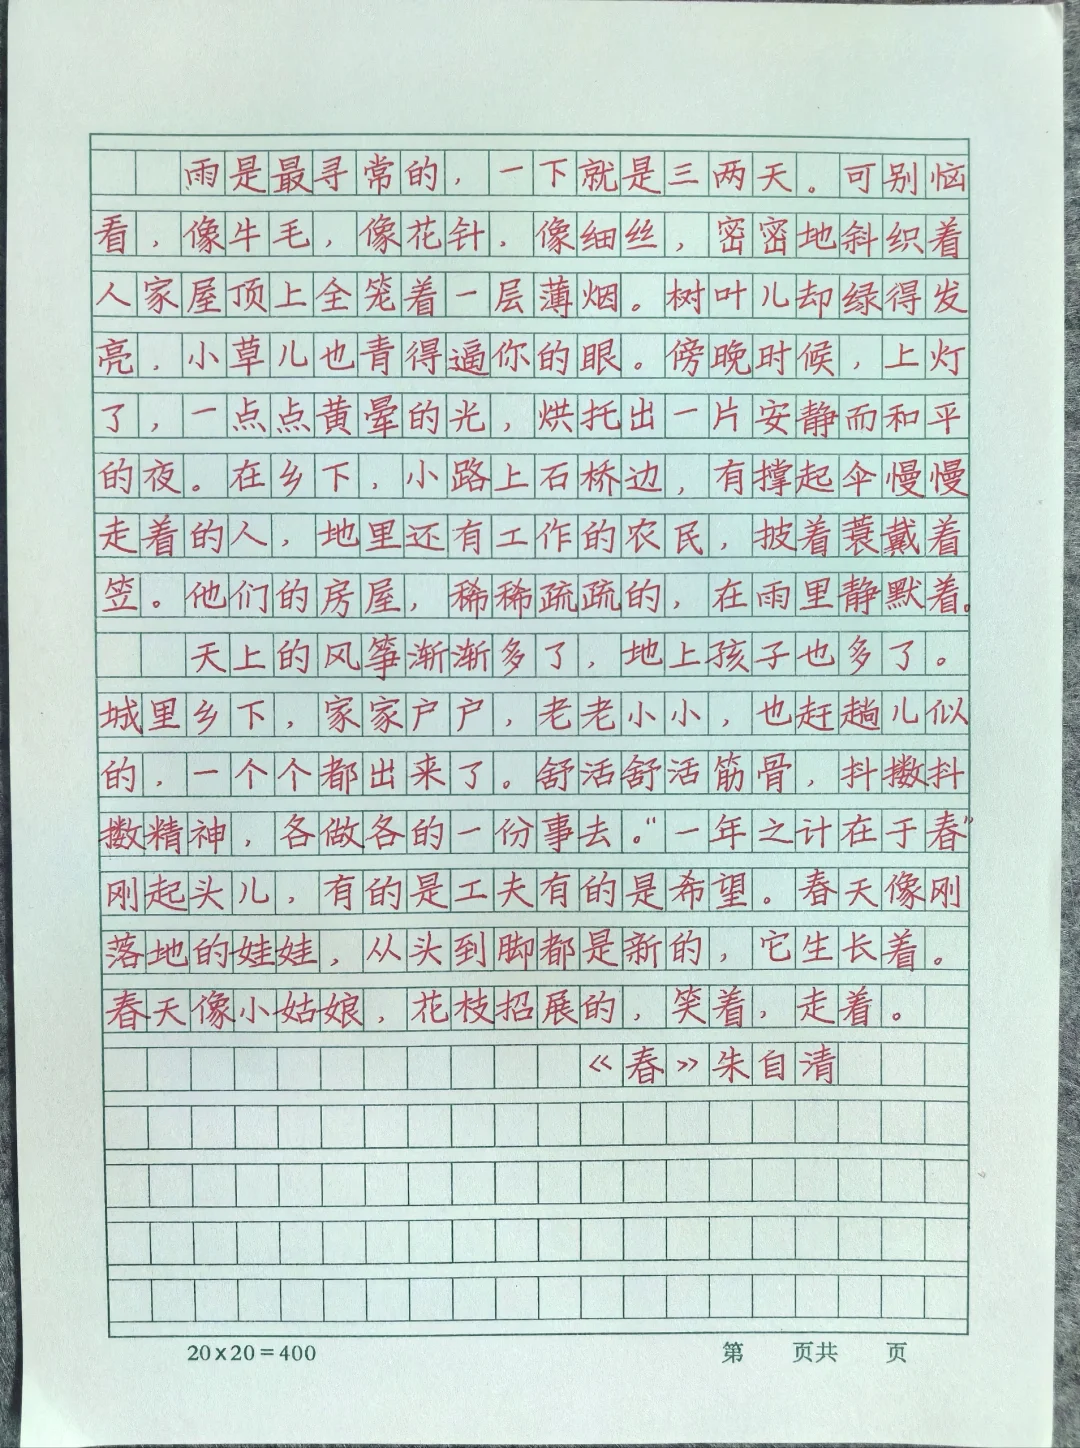 雨是最寻常的，一下就是三两天。可别恼
看，像牛毛，像花针，像细丝，密密地斜织着
人家屋顶上全笼着一层薄烟。树叶儿却绿得发
亮，小草儿也青得逼你的眼。傍晚时候，上灯
了，一点点黄晕的光，烘托出一片安静而和平
的夜。在乡下，小路上石桥边，有撑起伞慢慢
走着的人，地里还有工作的农民，披着蓑戴着
笠。他们的房屋，稀稀疏疏的，在雨里静默着。
天上的风筝渐渐多了，地上孩子也多了。
城里乡下，家家户户，老老小小，也赶趟儿似
的，一个个都出来了。舒活舒活筋骨，抖擞抖
擞精神，各做各的一份事去。“一年之计在于春”
刚起头儿，有的是工夫有的是希望。春天像刚
落地的娃娃，从头到脚都是新的，它生长着。
春天像小姑娘，花枝招展的，笑着，走着。
《春》朱自清
20×20=400 第 页共 页